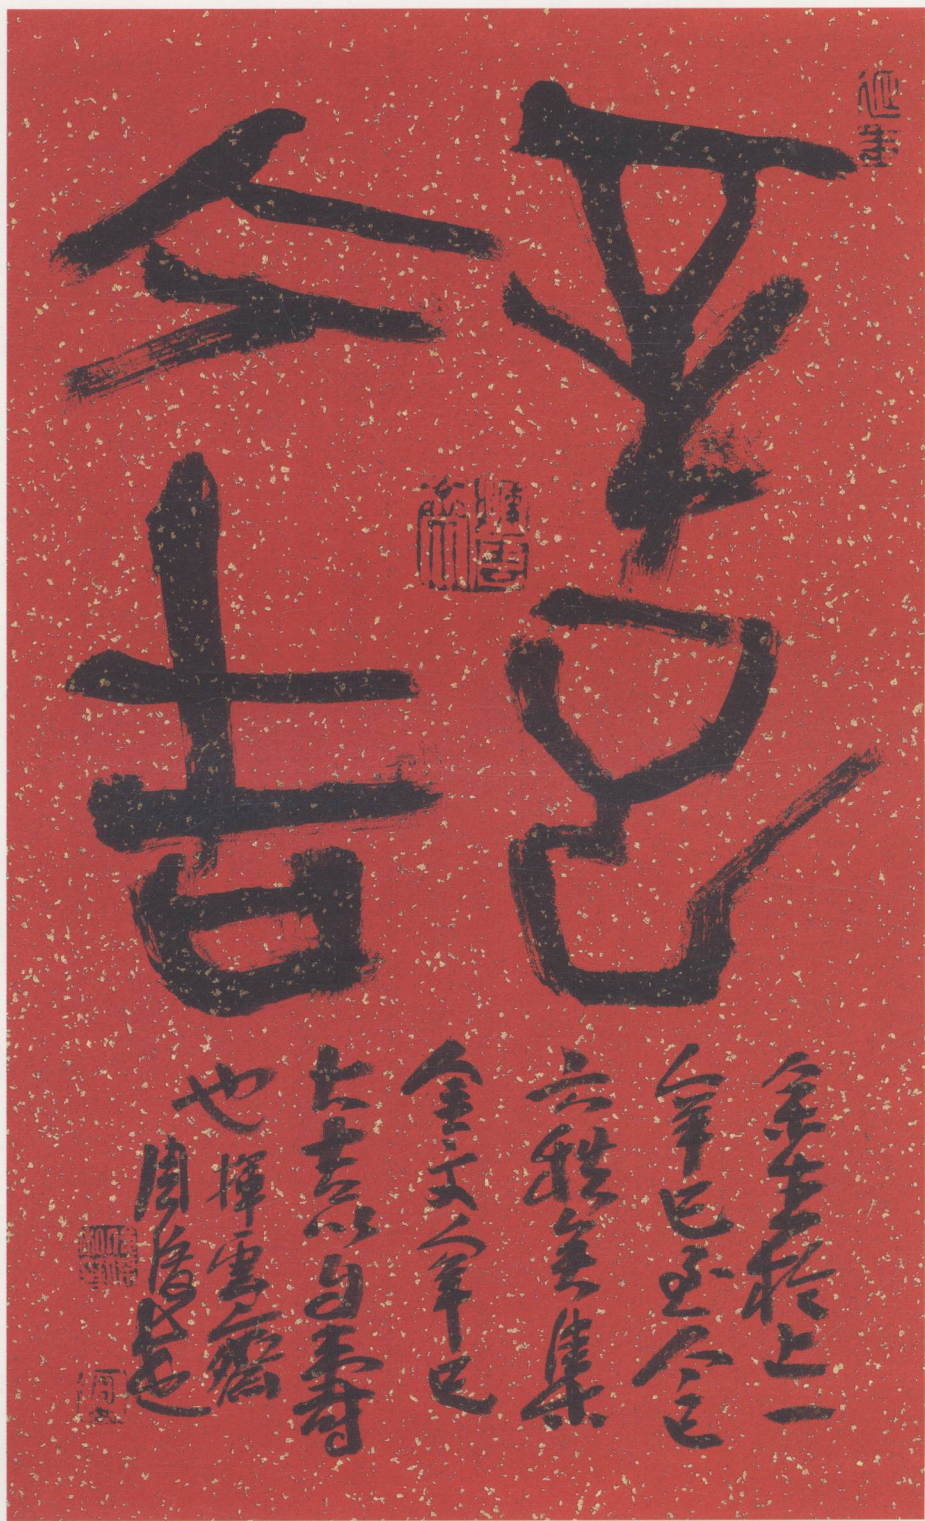 辛巳
大吉
余生於上一
辛巳至今已
六秩矣集
金文辛巳
大吉以自壽
也 揮雲齋
周俊杰